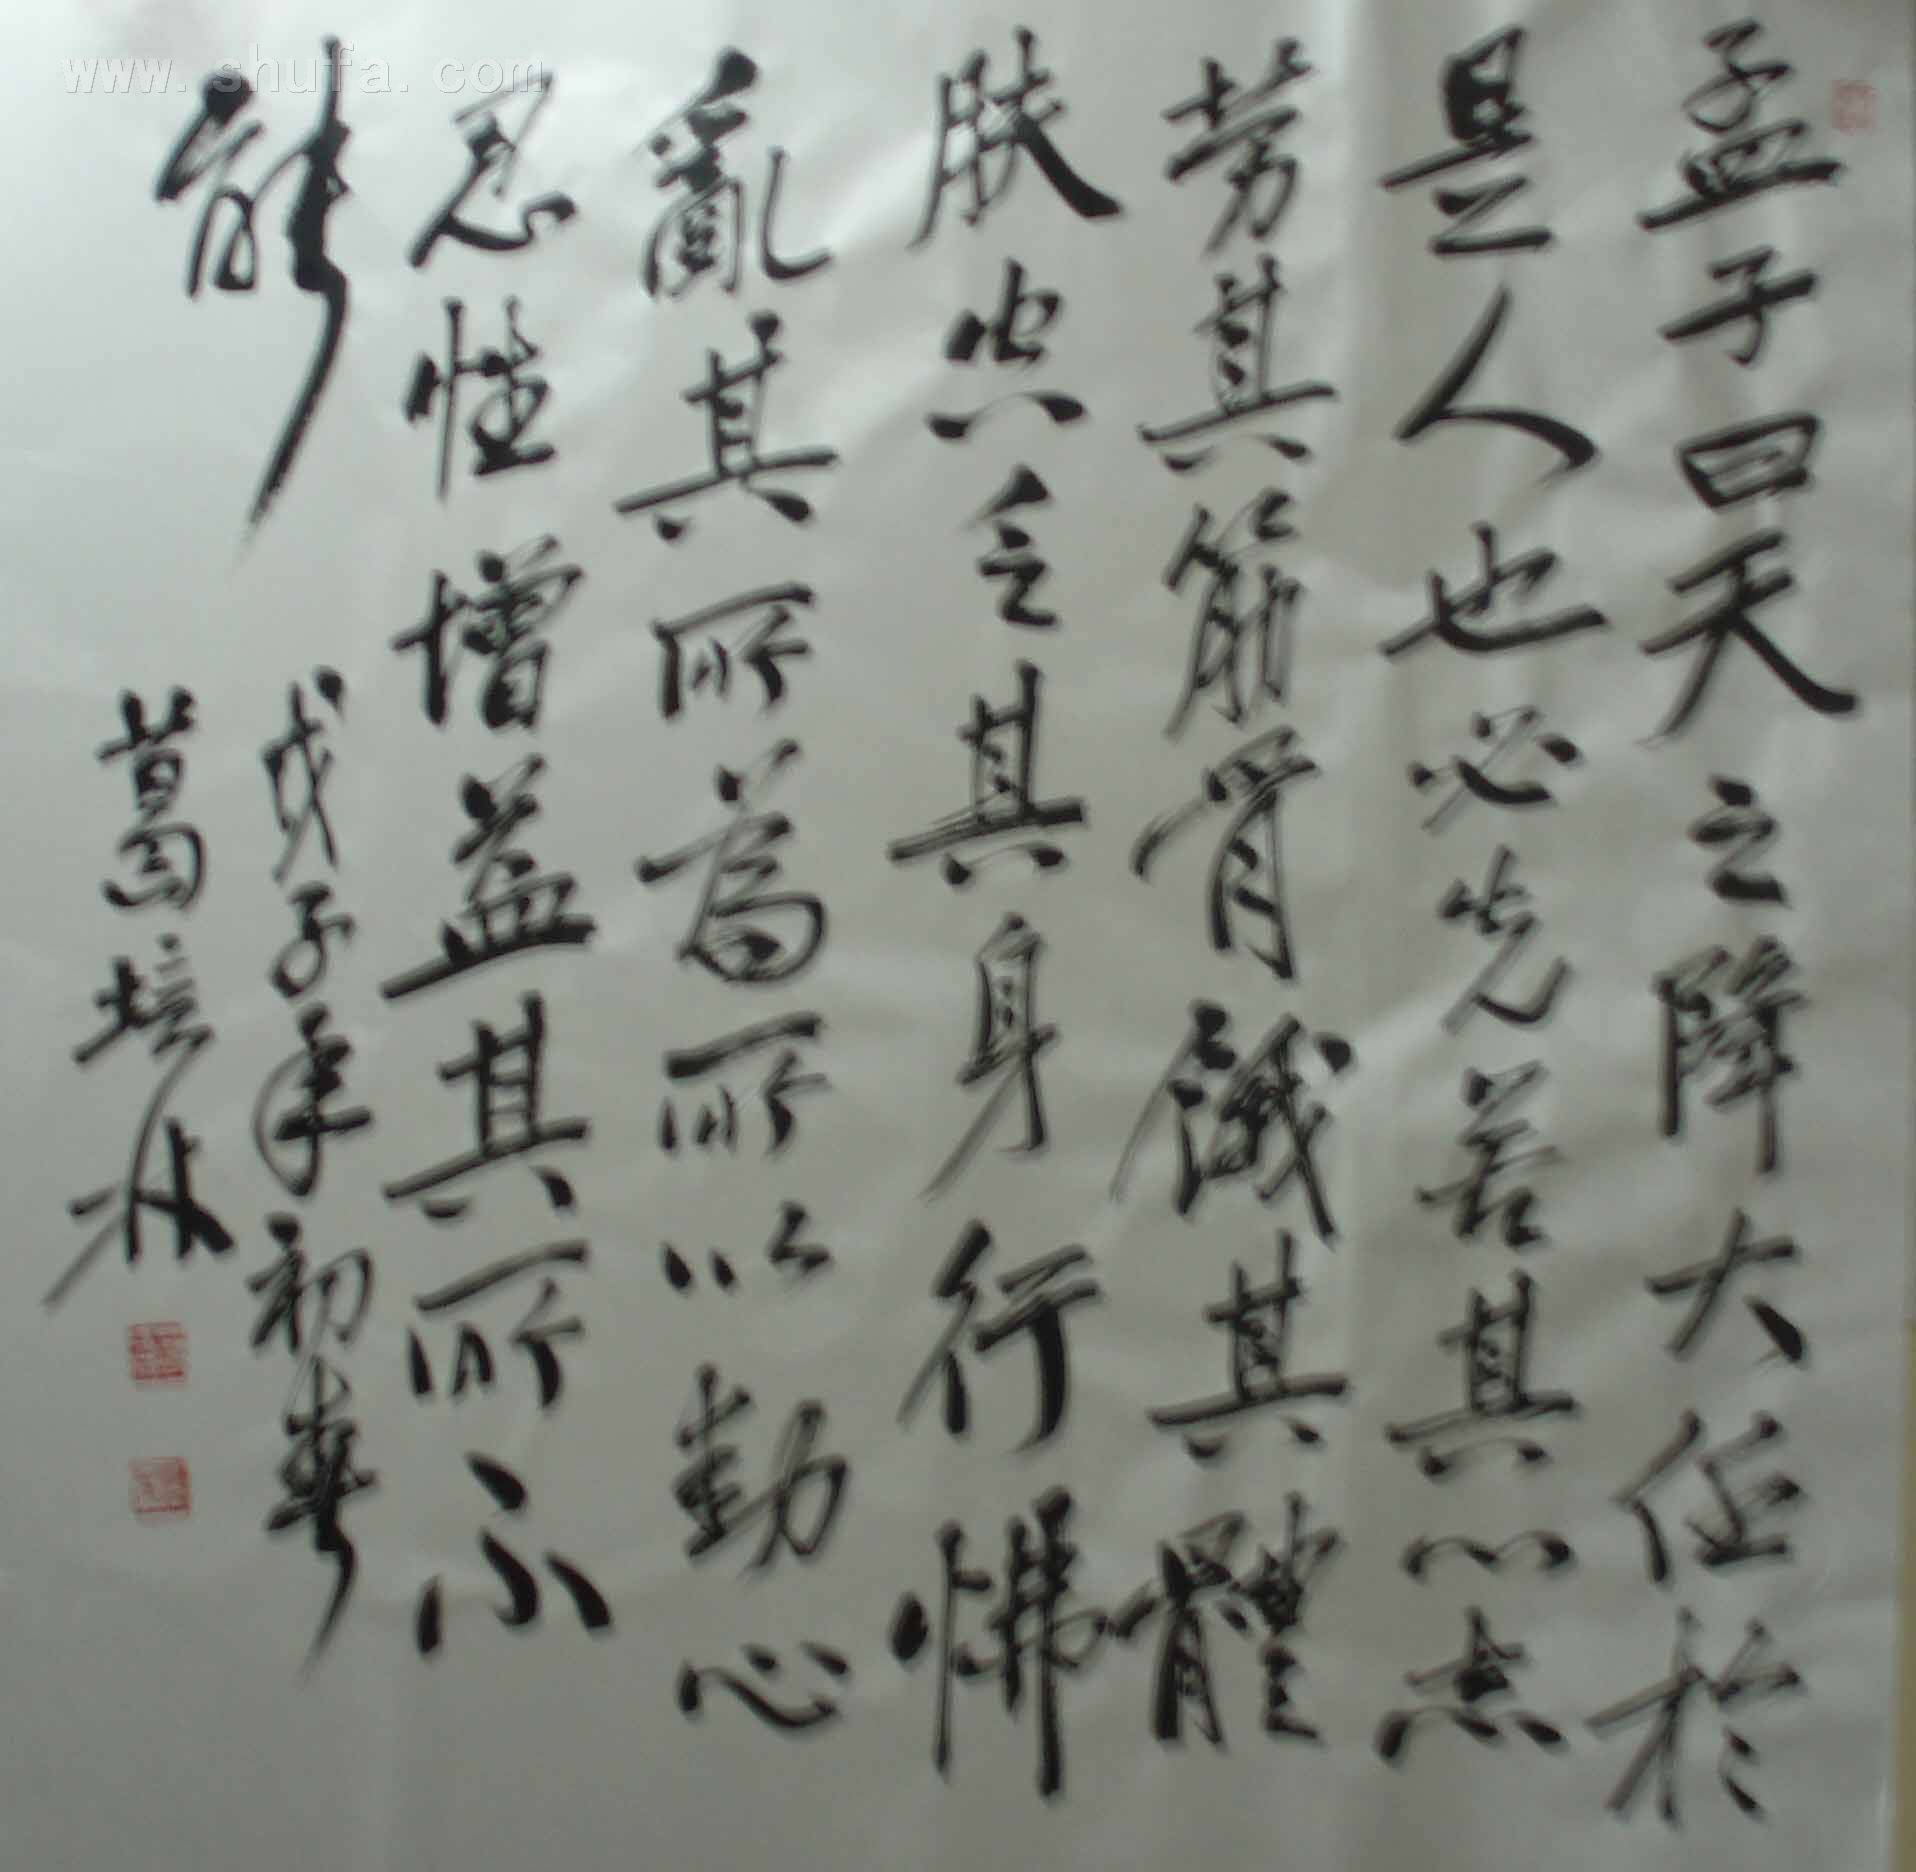 孟子曰天之降大任於
是人也必先苦其心志
劳其筋骨餓其體
肤空乏其身行怫
亂其所為所以動心
忍性增益其所不
能
戊子年初春
葛培林
www.shufa.com